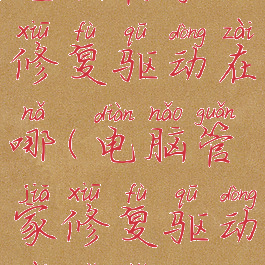 xiū fù qū dòng zài
修复驱动在
nǎ diàn nǎo guǎn
哪(电脑管
jiā xiū fù qū dòng
家修复驱动